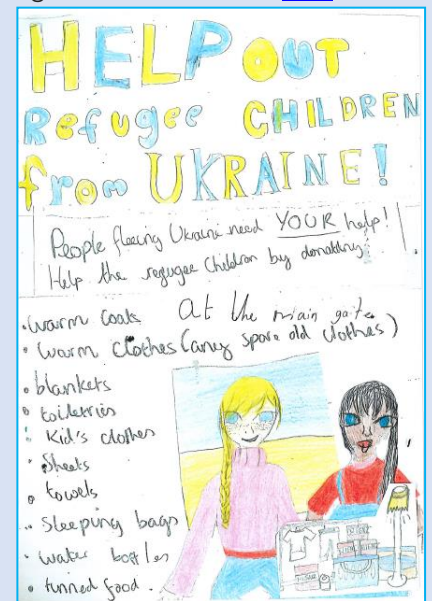 HELP OUT
Refugee CHILDREN
from UKRAINE!
People fleeing Ukraine need YOUR help!
Help the refugee children by donating
at the main gate
• warm coats
• warm clothes (any spare old clothes)
• blankets
• toiletries
• Kid's clothes
• Sheets
• towels
• sleeping bags
• water bottles
• tinned food.